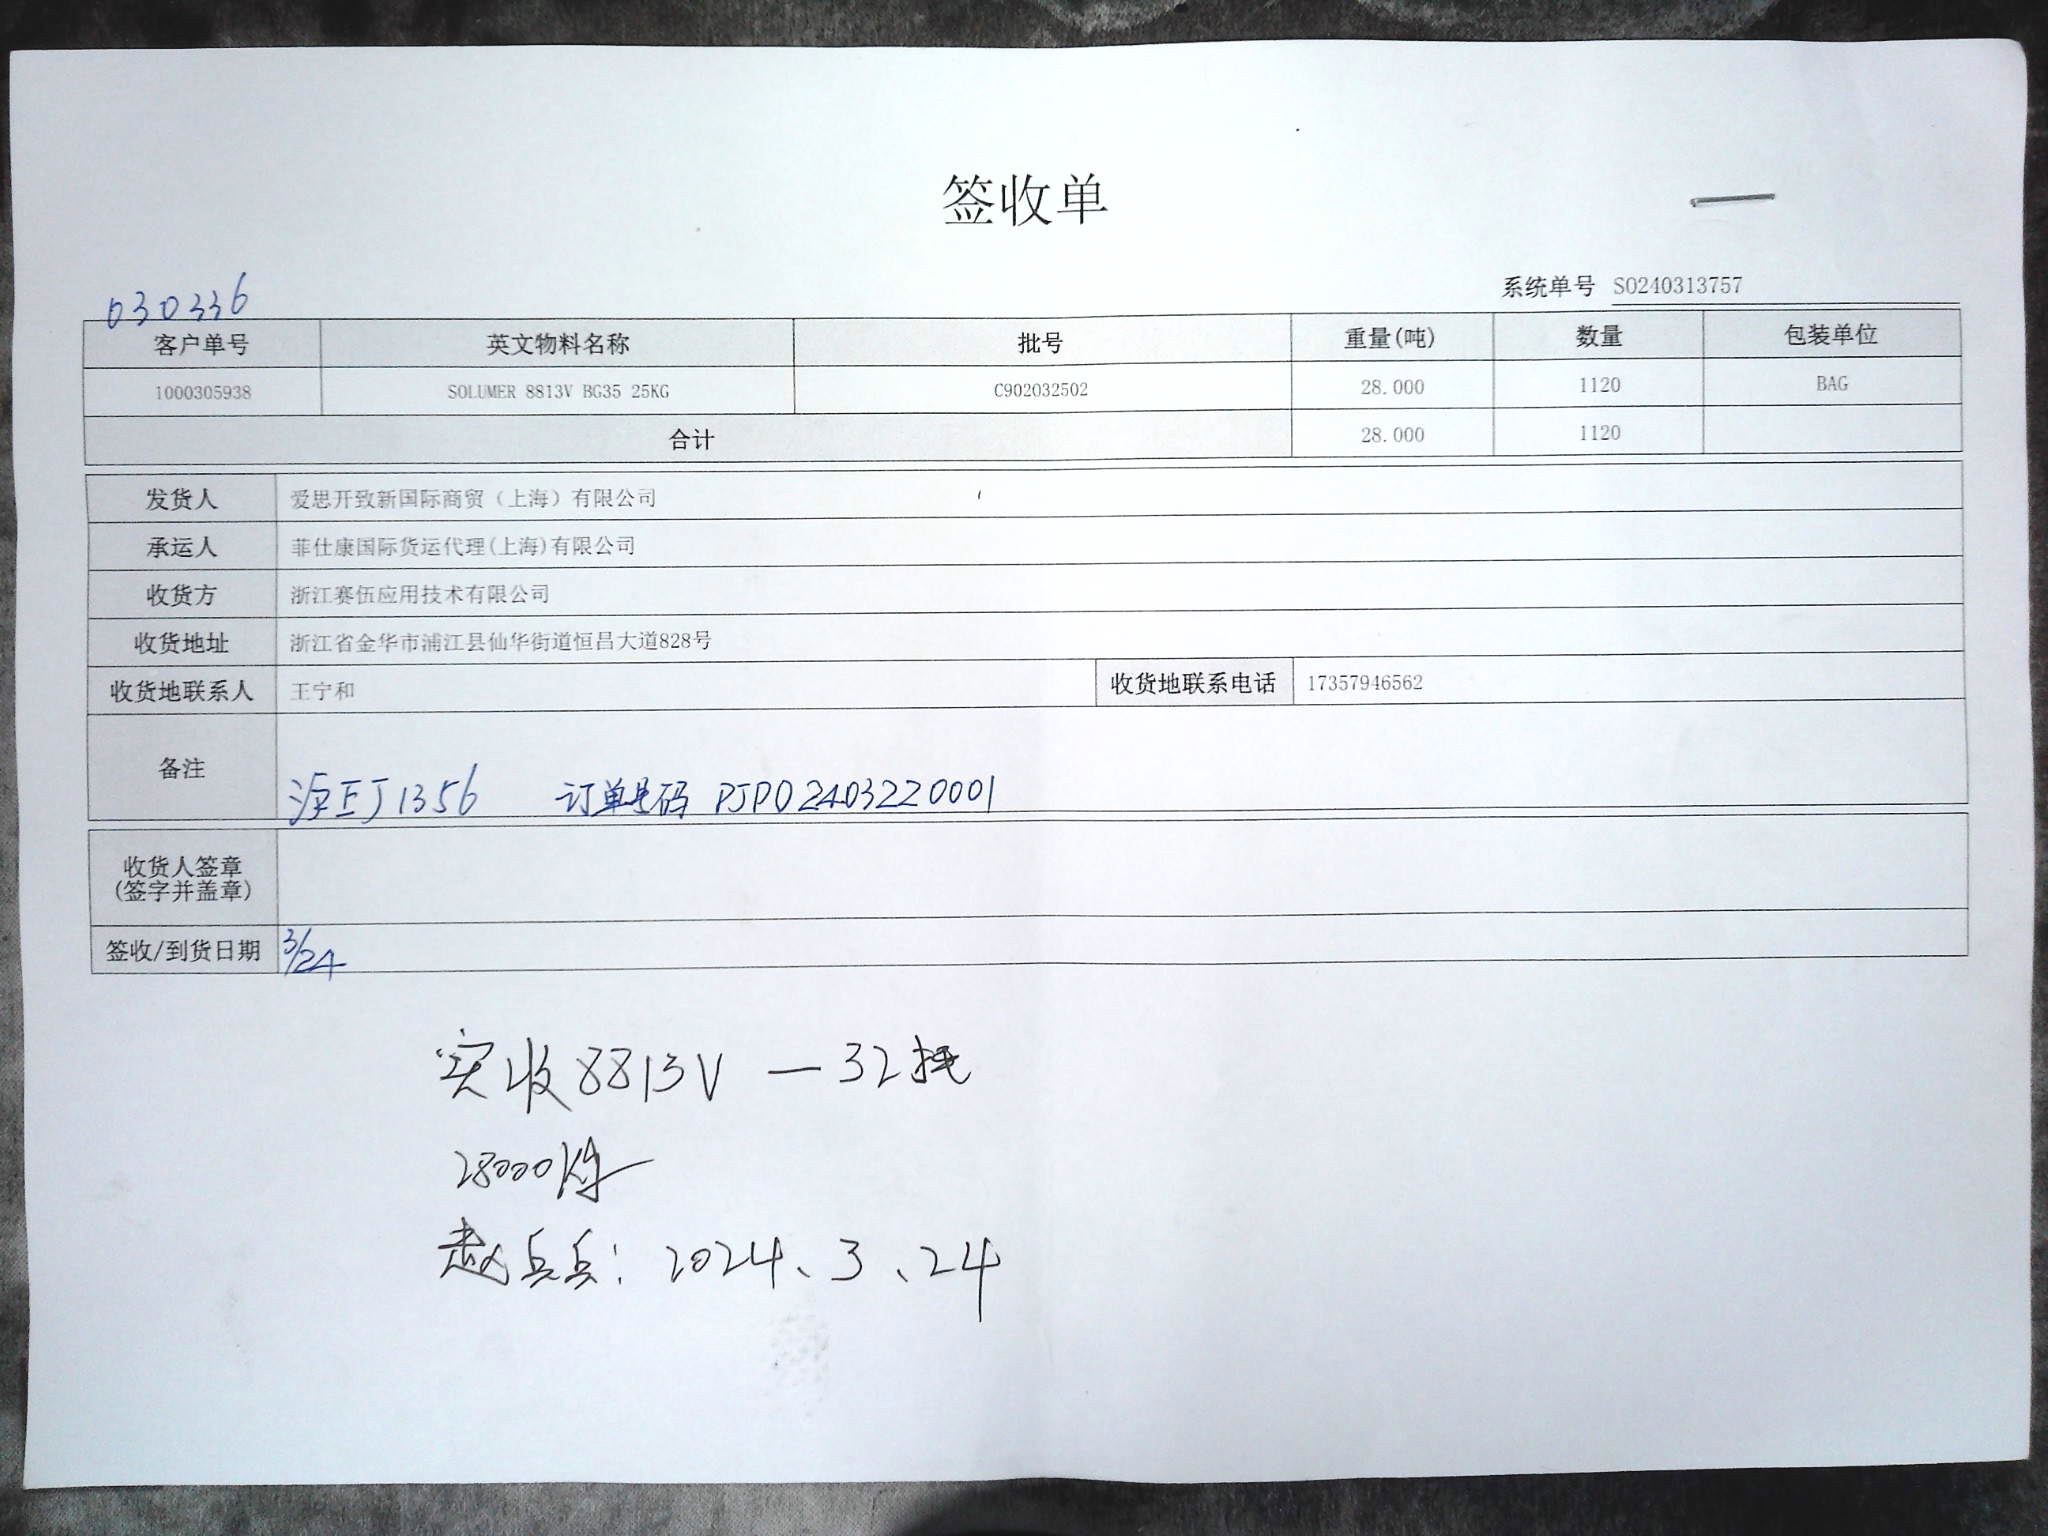 签收单
系统单号 SO240313757
030336
客户单号 英文物料名称 批号 重量(吨) 数量 包装单位
1000305938 SOLUMER 8813V BG35 25KG C902032502 28.000 1120 BAG
合计 28.000 1120
发货人 爱思开致新国际商贸（上海）有限公司
承运人 菲仕康国际货运代理(上海)有限公司
收货方 浙江赛伍应用技术有限公司
收货地址 浙江省金华市浦江县仙华街道恒昌大道828号
收货地联系人 王宁和 收货地联系电话 17357946562
备注 沪EJ1356 订单号码 PJPO2403220001
收货人签章
(签字并盖章)
签收/到货日期 3/24
实收8813V — 32托
28000
赵兵兵: 2024、3、24